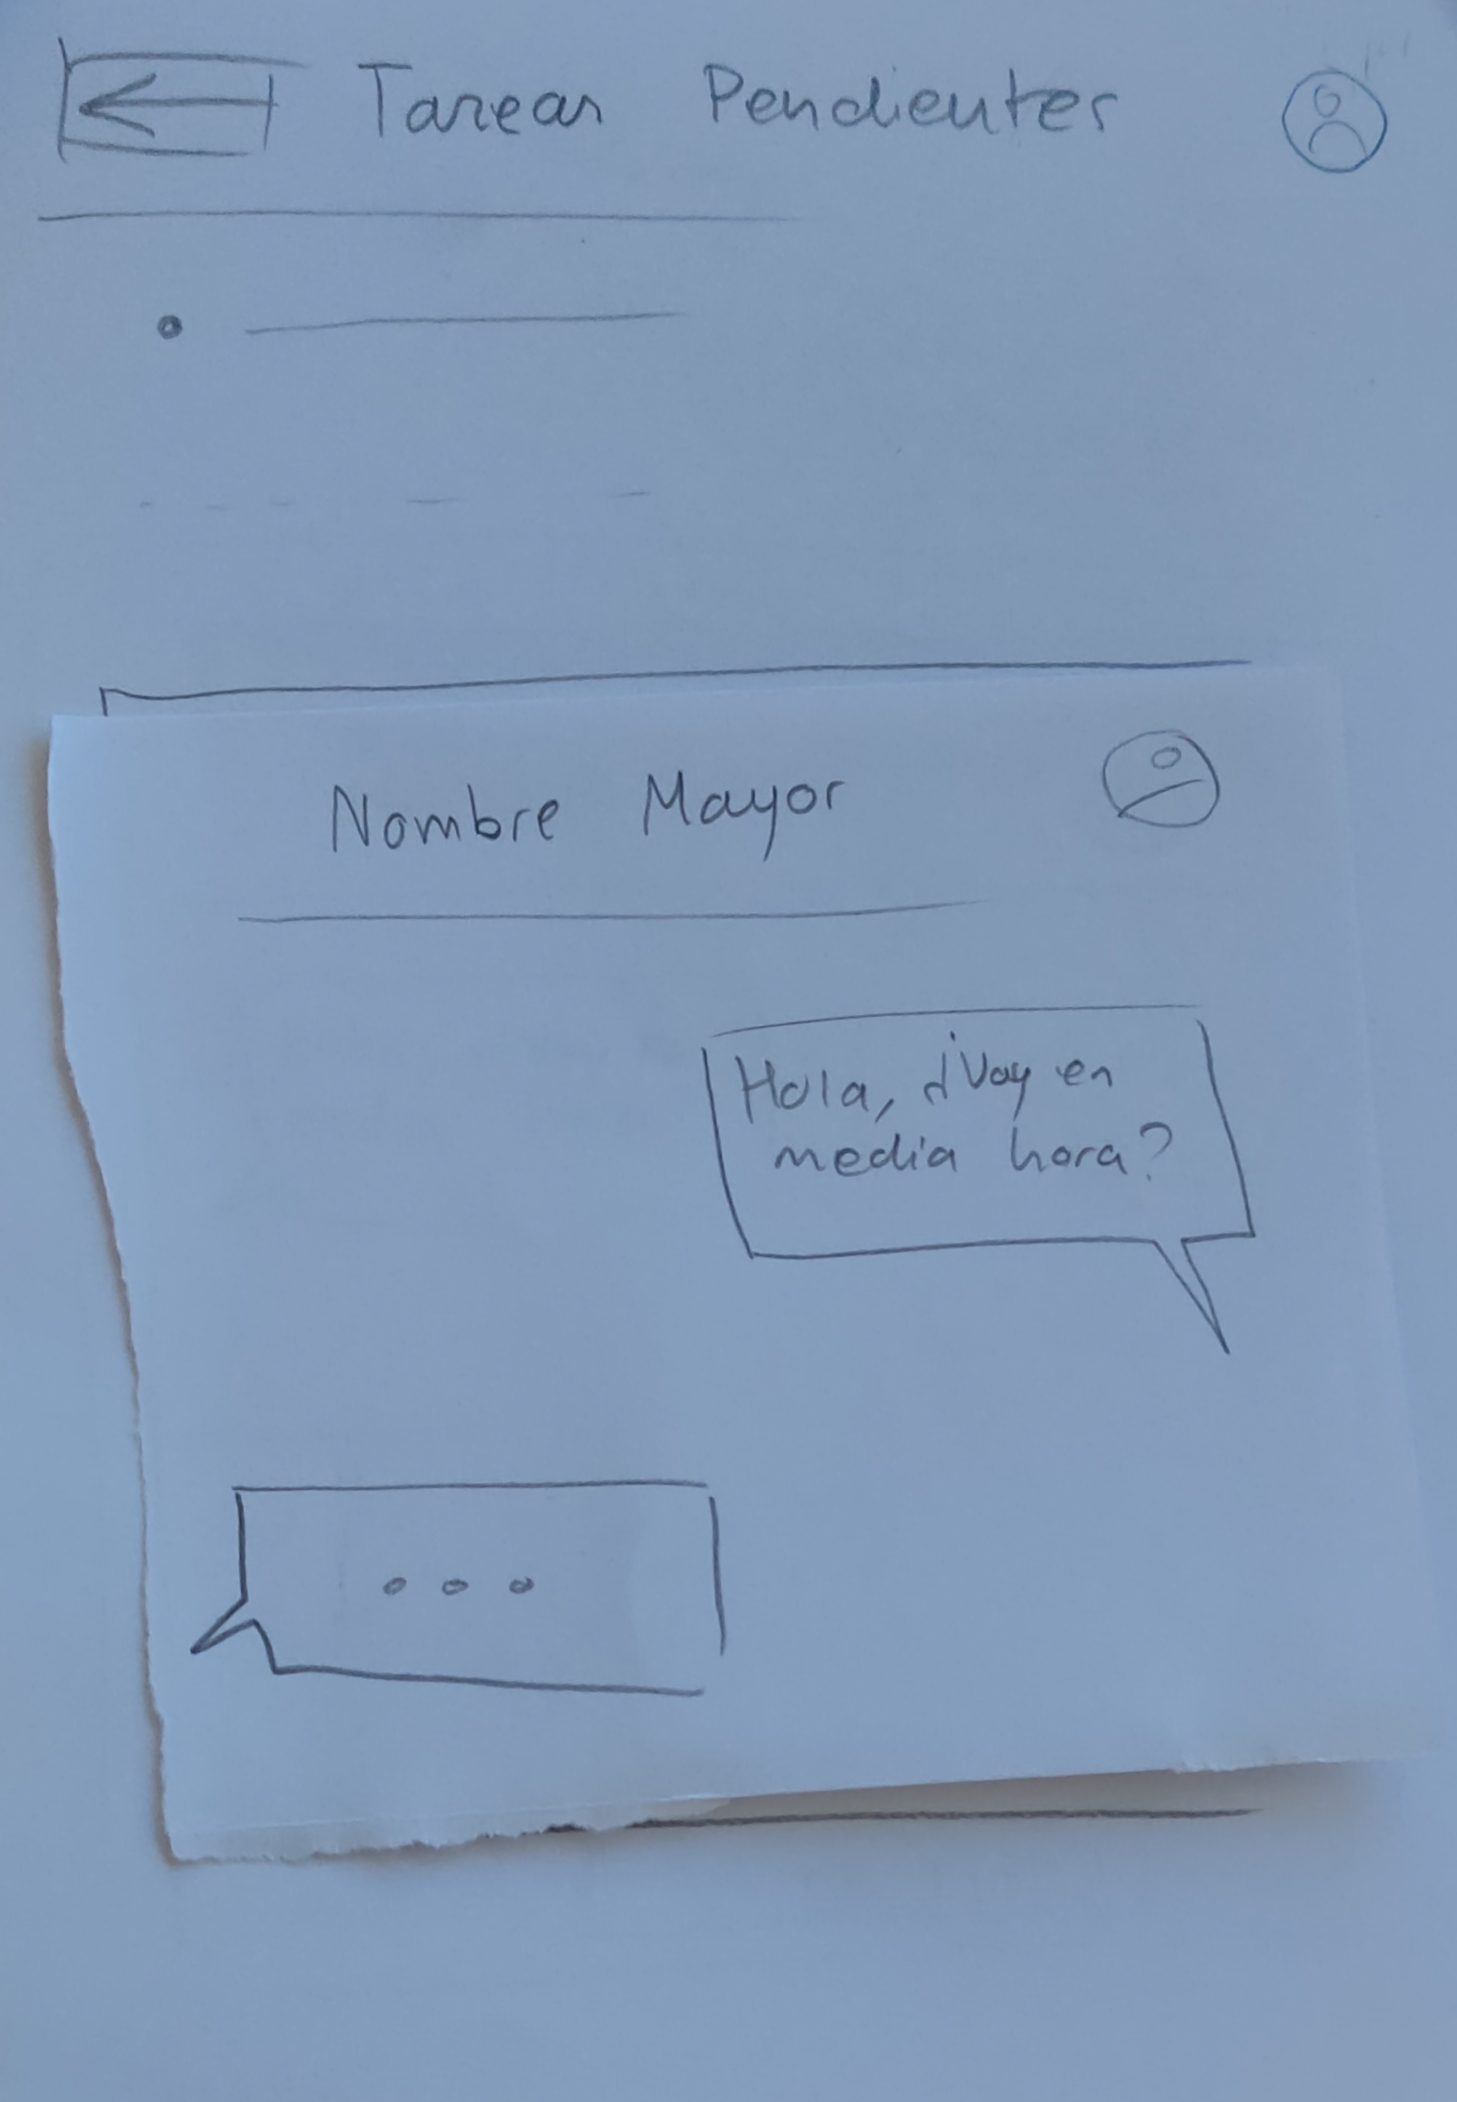 Tareas Pendientes
Nombre Mayor
Hola, ¿Voy en
media hora?